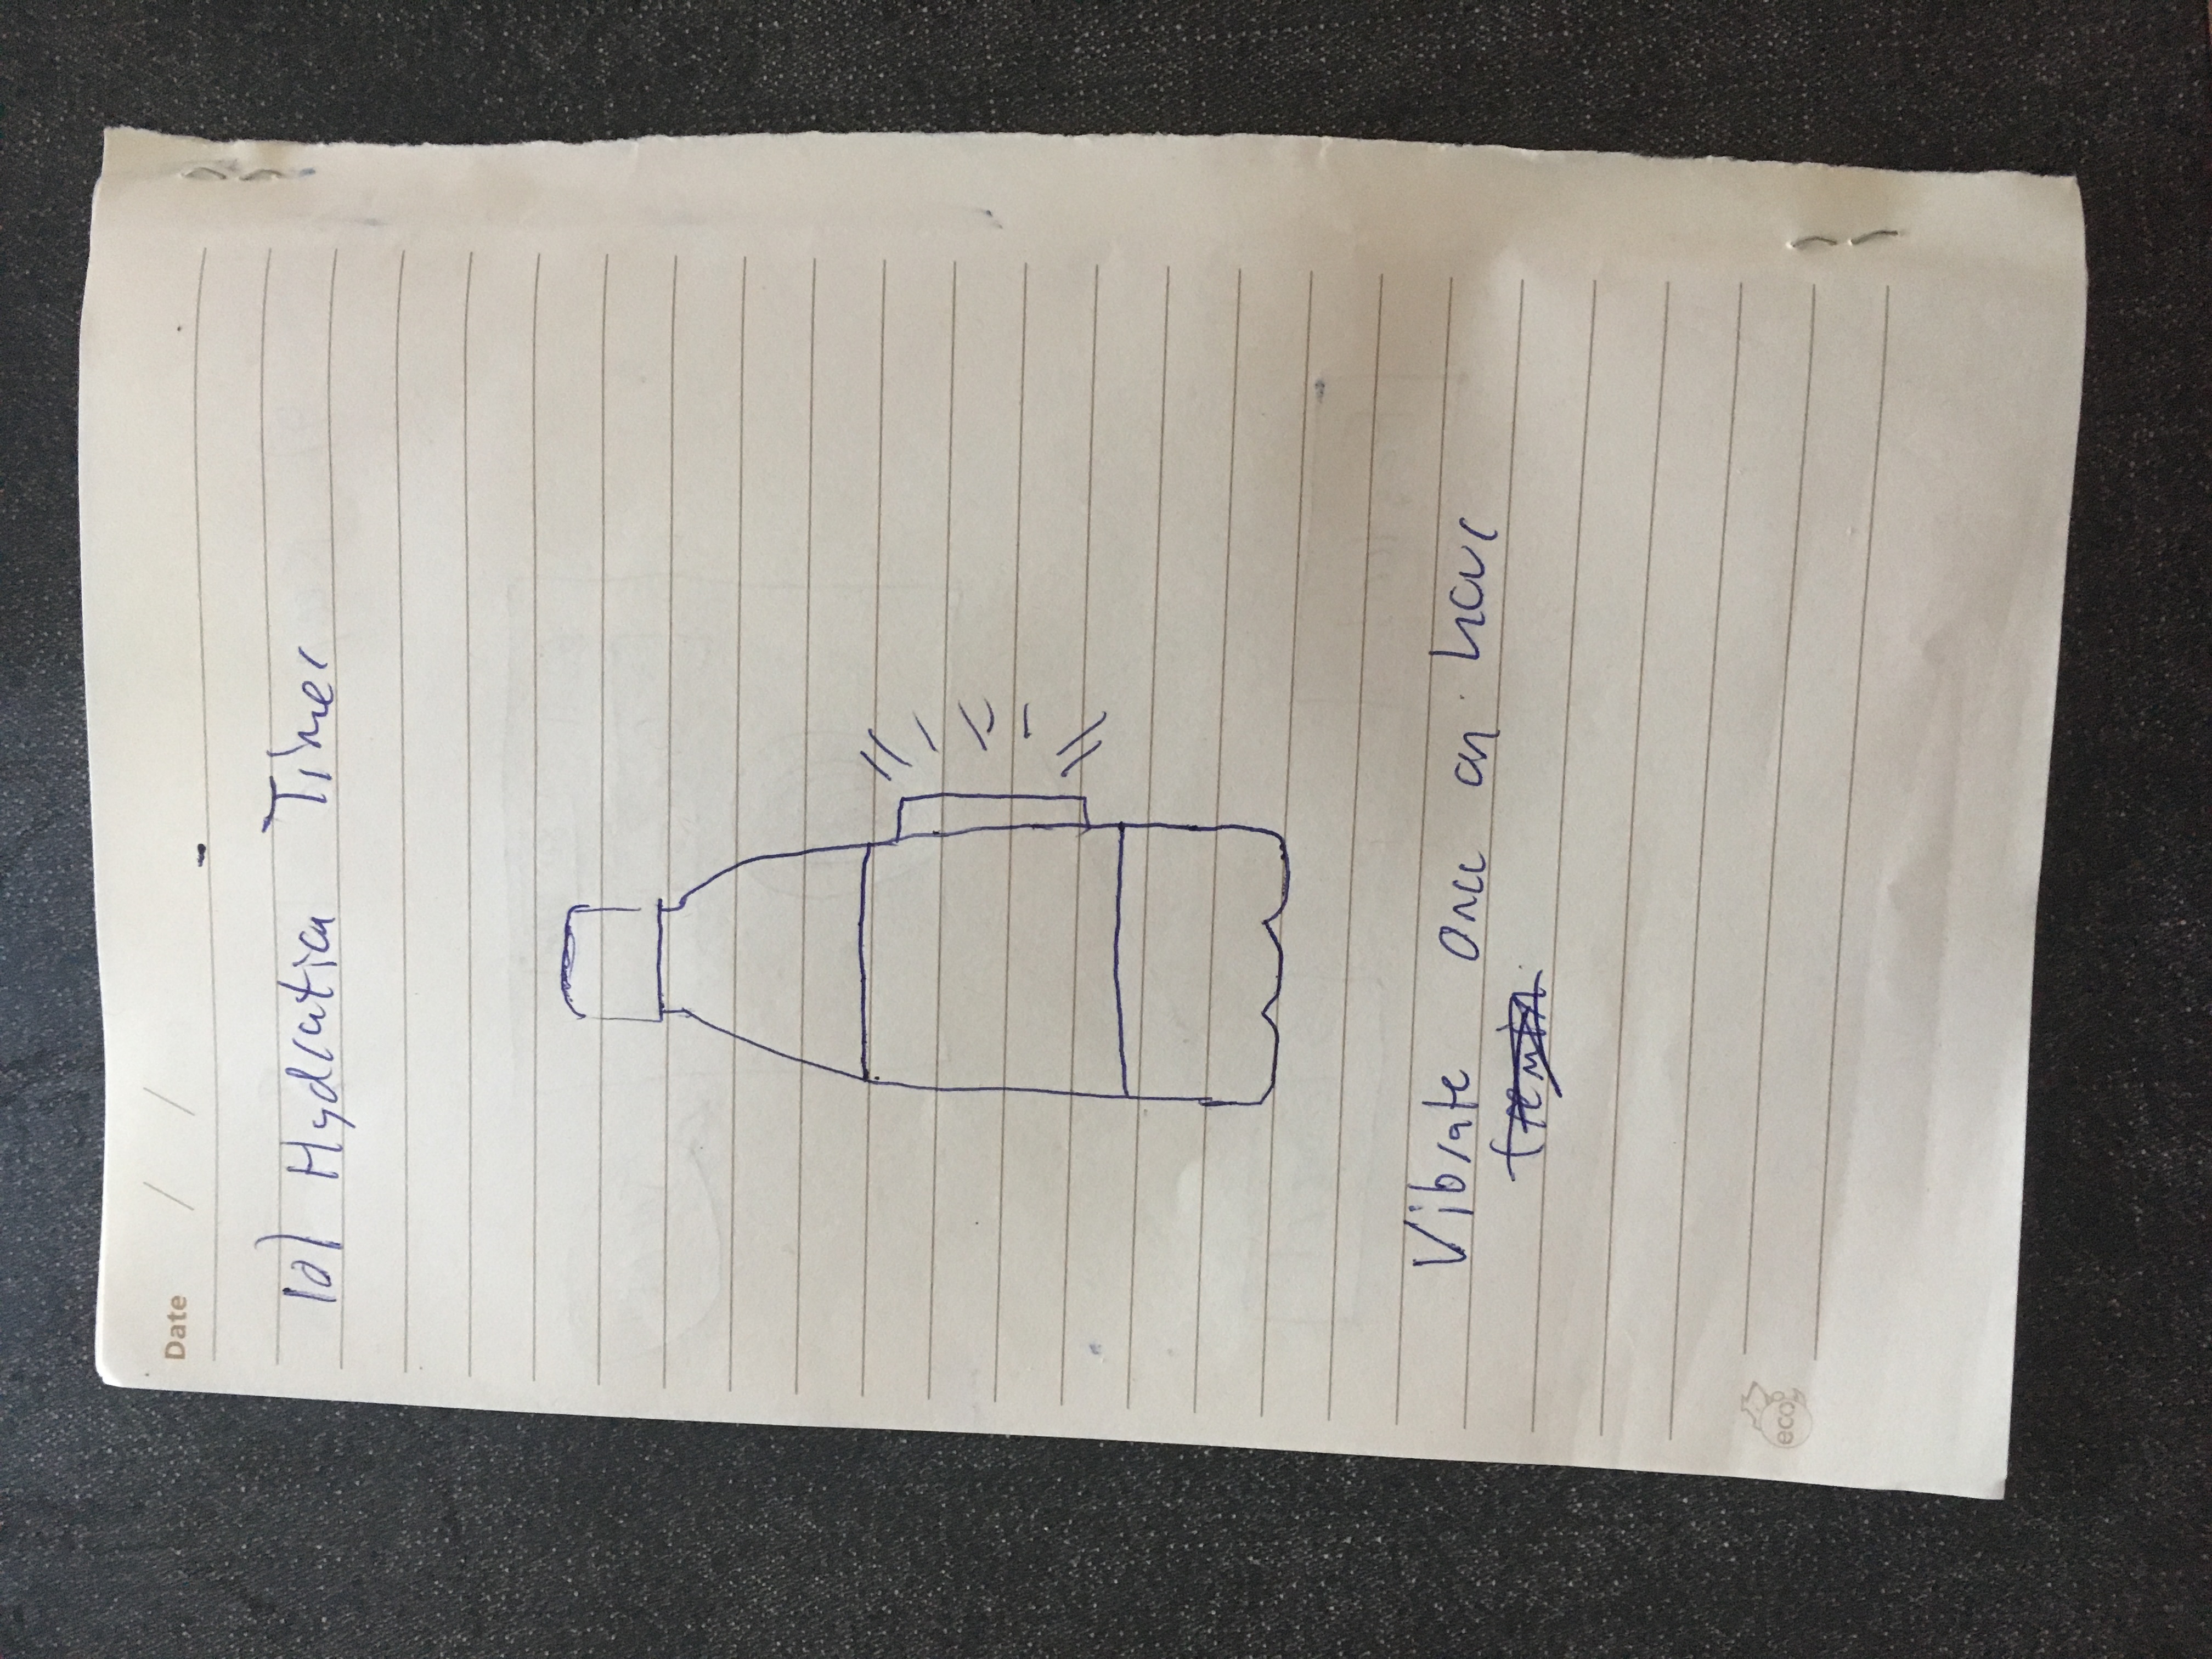 Date / /
10) Hydration Timer
Vibrate once an hour
eco